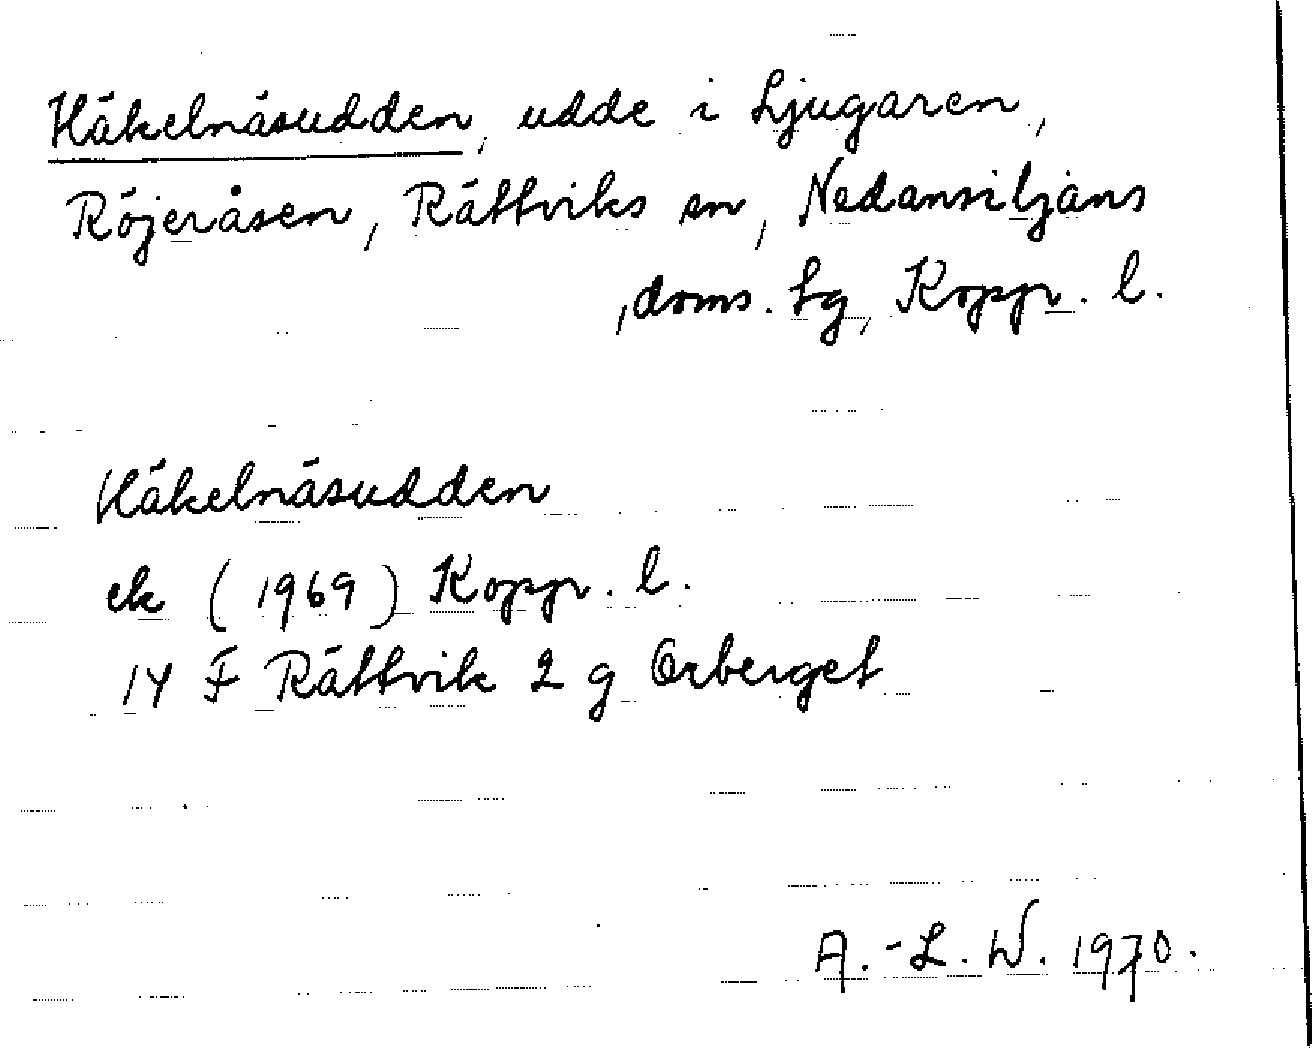 Häkelnäsudden, udde i Ljugaren,
Röjeråsen, Rättviks sn, Nedansiljans
,doms. lg, Koppr. l.
Häkelnäsudden
ek (1969) Koppr. l.
14 F Rättvik 2 g Orberget
A.-L. W. 1970.